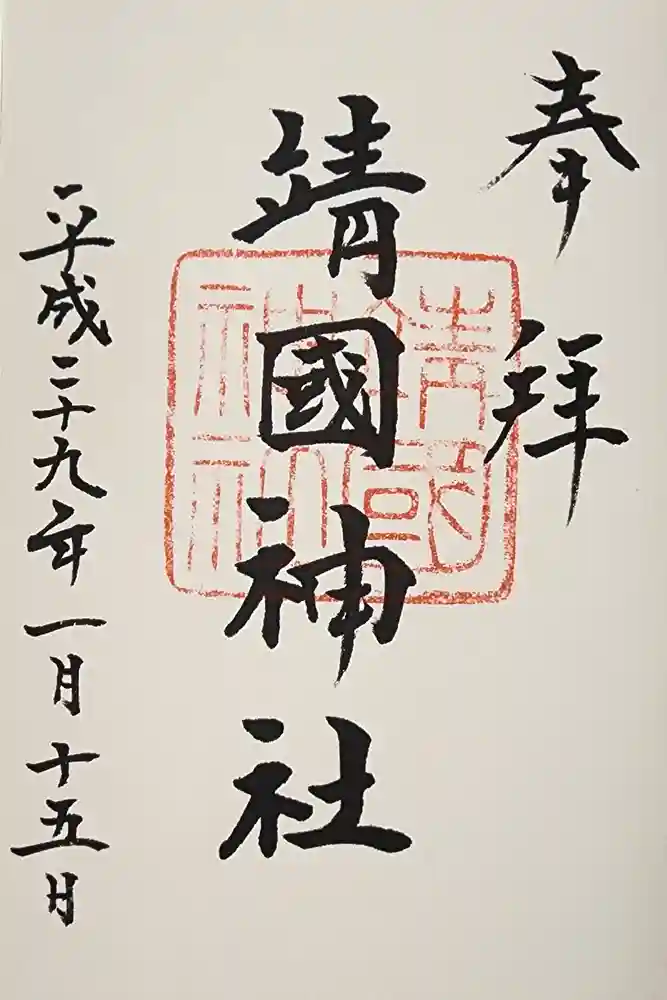 奉拝
靖國神社
靖國神社
平成二十九年一月十五日